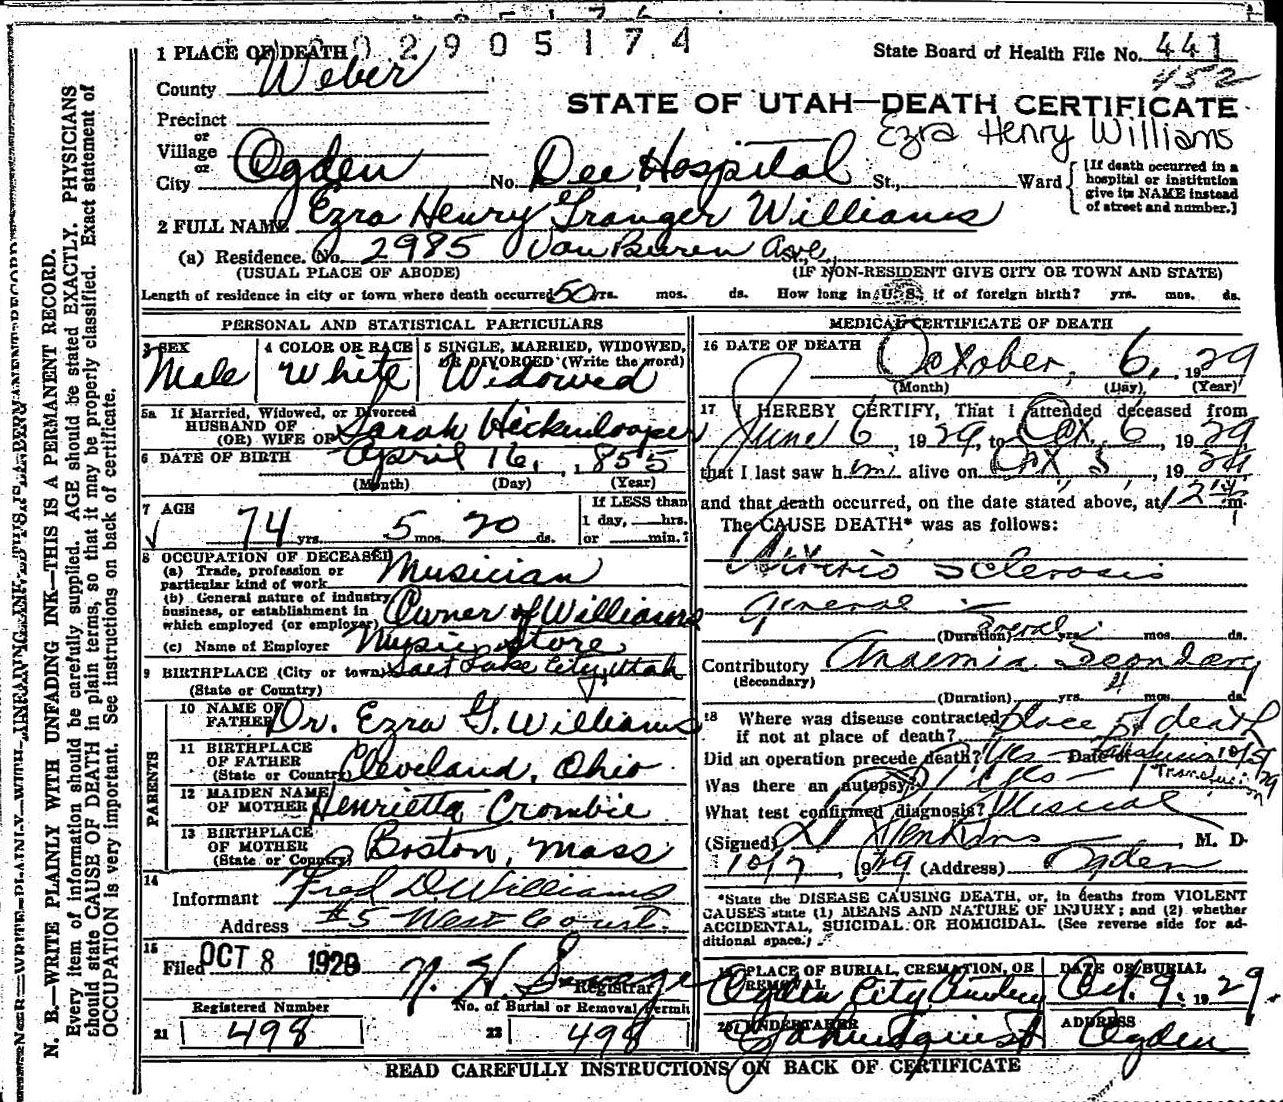 2905174
1 PLACE OF DEATH
State Board of Health File No. 441
452
County Weber
STATE OF UTAH—DEATH CERTIFICATE
Precinct
Ezra Henry Williams
or
Village
or
City Ogden No. Dee Hospital St., Ward
[If death occurred in a hospital or institution give its NAME instead of street and number.]
2 FULL NAME Ezra Henry Granger Williams
(a) Residence. No. 2985 Van Buren Ave.
(USUAL PLACE OF ABODE) (IF NON-RESIDENT GIVE CITY OR TOWN AND STATE)
Length of residence in city or town where death occurred 50 yrs. mos. ds. How long in U.S. if of foreign birth? yrs. mos. ds.
PERSONAL AND STATISTICAL PARTICULARS
3 SEX
Male
4 COLOR OR RACE
White
5 SINGLE, MARRIED, WIDOWED,
OR DIVORCED (Write the word)
Widowed
5a If Married, Widowed, or Divorced
HUSBAND OF
(OR) WIFE OF Sarah Hickenlooper
6 DATE OF BIRTH April 16, 1855
(Month) (Day) (Year)
7 AGE
74 yrs. 5 mos. 20 ds.
If LESS than
1 day, hrs.
or min.?
8 OCCUPATION OF DECEASED
(a) Trade, profession or
particular kind of work Musician
(b) General nature of industry
business, or establishment in
which employed (or employer) Owner of Williams
(c) Name of Employer Music Store
9 BIRTHPLACE (City or town) Salt Lake City, Utah
(State or Country)
PARENTS
10 NAME OF
FATHER Dr. Ezra G. Williams
11 BIRTHPLACE
OF FATHER
(State or Country) Cleveland, Ohio
12 MAIDEN NAME
OF MOTHER Henrietta Crombie
13 BIRTHPLACE
OF MOTHER
(State or Country) Boston, Mass
14
Informant Fred D. Williams
Address #5 West Court.
15
Filed OCT 8 1929 N. H. Savage
Registrar
Registered Number
21 498
No. of Burial or Removal Permit
22 498
MEDICAL CERTIFICATE OF DEATH
16 DATE OF DEATH October, 6, 1929
(Month) (Day) (Year)
17 I HEREBY CERTIFY, That I attended deceased from
June 6, 1929, to Oct. 6, 1929,
that I last saw him alive on Oct 5, 1929
and that death occurred, on the date stated above, at m.
The CAUSE DEATH* was as follows:
Arterio Sclerosis
General
(Duration) several yrs. mos. ds.
Contributory Anaemia Secondary
(Secondary)
(Duration) yrs. 4 mos. ds.
18 Where was disease contracted
if not at place of death? place of death
Did an operation precede death? Yes Date of 10/5/29
Transfusion
Was there an autopsy?
What test confirmed diagnosis?
(Signed) Jenkins, M. D.
10/7, 1929 (Address) Ogden
*State the DISEASE CAUSING DEATH, or, in deaths from VIOLENT
CAUSES state (1) MEANS AND NATURE OF INJURY; and (2) whether
ACCIDENTAL, SUICIDAL OR HOMICIDAL. (See reverse side for ad-
ditional space.)
19 PLACE OF BURIAL, CREMATION, OR
REMOVAL
Ogden City Cemetery
DATE OF BURIAL
Oct. 9, 1929.
20 UNDERTAKER
Lindquist
ADDRESS
Ogden
READ CAREFULLY INSTRUCTIONS ON BACK OF CERTIFICATE
N. B.—WRITE PLAINLY WITH UNFADING INK—THIS IS A PERMANENT RECORD.
Every item of information should be carefully supplied. AGE should be stated EXACTLY. PHYSICIANS
should state CAUSE OF DEATH in plain terms, so that it may be properly classified. Exact statement of
OCCUPATION is very important. See instructions on back of certificate.